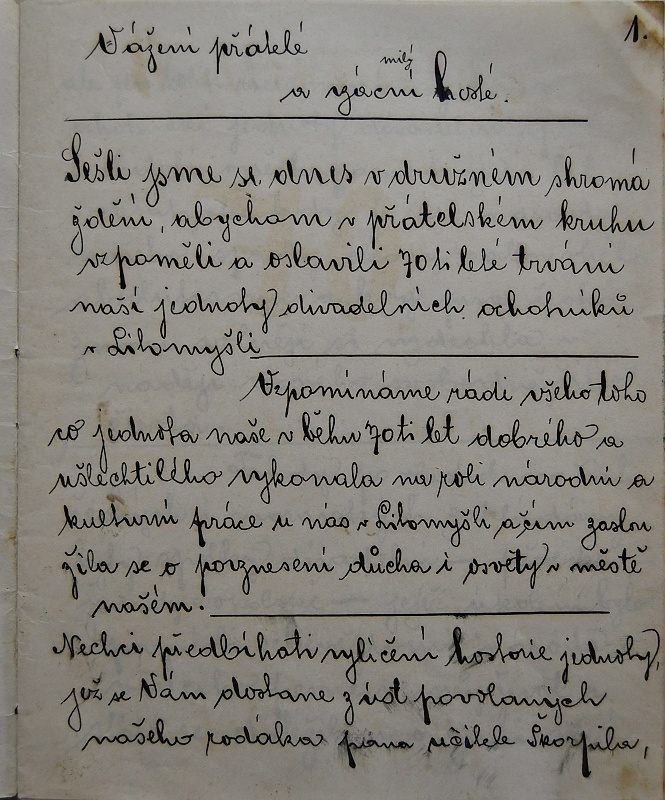 1.
Vážení přátelé
milý
a vzácní hosté.
Sešli jsme se dnes v družném shromá
ždění, abychom v přátelském kruhu
vzpoměli a oslavili 70ti leté trvání
naší jednoty divadelních ochotníků
v Litomyšli
Vzpomínáme rádi všeho toho
co jednota naše v běhu 70ti let dobrého a
ušlechtilého vykonala na roli národní a
kulturní práce u nás v Litomyšli a čím zaslou
žila se o povznesení důcha i osvěty v městě
našem.
Nechci předbíhati vylíčení hostorie jednoty,
jež se Vám dostane z úst povolaných
našeho rodáka pana učitele Škorpila,